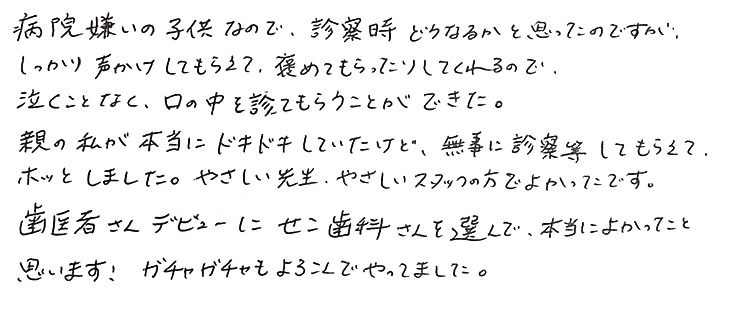 病院嫌いの子供なので、診察時どうなるかと思ったのですが、
しっかり声かけしてもらえて、褒めてもらったりしてくれるので、
泣くことなく、口の中を診てもらうことができた。
親の私が本当にドキドキしていたけど、無事に診察等してもらえて、
ホッとしました。やさしい先生、やさしいスタッフの方でよかったです。
歯医者さんデビューにせこ歯科さんを選んで、本当によかったこと
思います! ガチャガチャもよろこんでやってました。